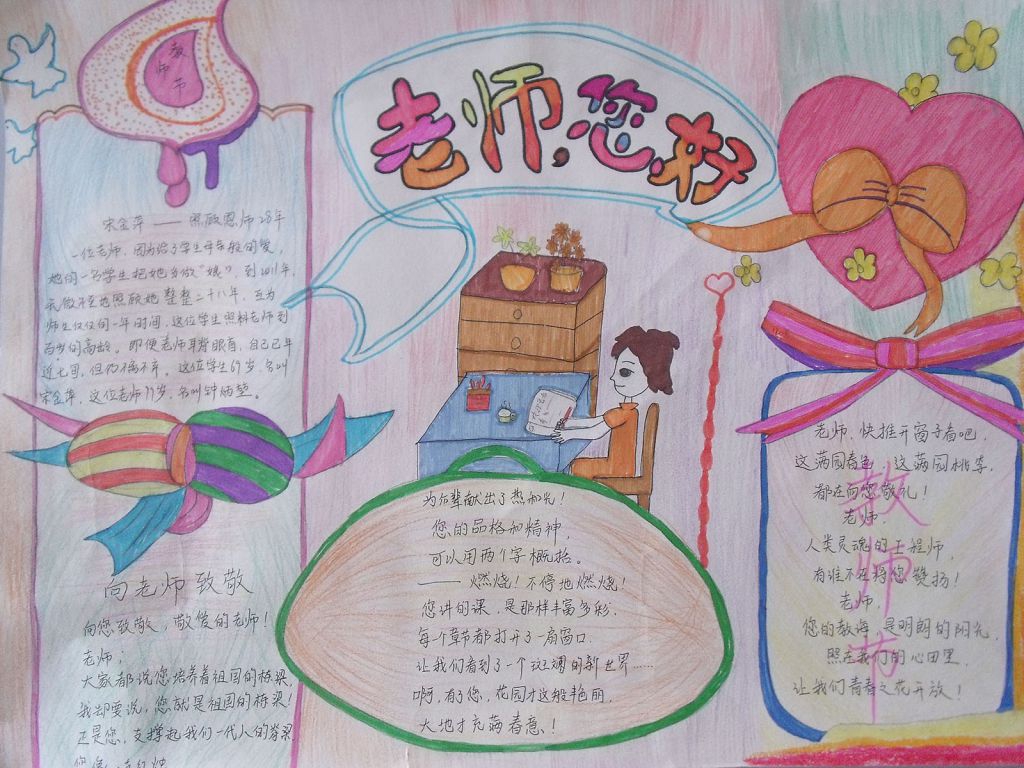 教师节
老师,您好
宋金萍——照顾恩师28年
一位老师,因为给了学生母亲般的爱,
她的一名学生把她多做"娘",到2011年,
无微不至地照顾她整整二十八年,互为
师生仅仅间一年时间,这位学生照料老师到
百岁的高龄。即使老师耳背眼盲,自己已年
近七旬,但仍不离不弃。这位学生67岁,名叫
宋金萍,这位老师99岁,名叫钟丽莹。
向老师致敬
向您致敬,敬爱的老师!
老师:
大家都说您培养着祖国的栋梁,
我却要说,您就是祖国的栋梁!
正是您,支撑起我们一代人的脊梁
为后辈献出了热和光!
您的品格和精神,
可以用两个字概括。
——燃烧!不停地燃烧!
您讲的课,是那样丰富多彩,
每个章节都打开了一扇窗口,
让我们看到了一个斑斓的新世界……
啊,有了您,花园才这般艳丽,
大地才充满春意!
教师节
老师,快推开窗子看吧,
这满园春色,这满园桃李,
都在向您敬礼!
老师,
人类灵魂的工程师,
有谁不在将您赞扬!
老师,
您的教诲,是明朗的阳光,
照在我们的心田里,
让我们青春之花开放!